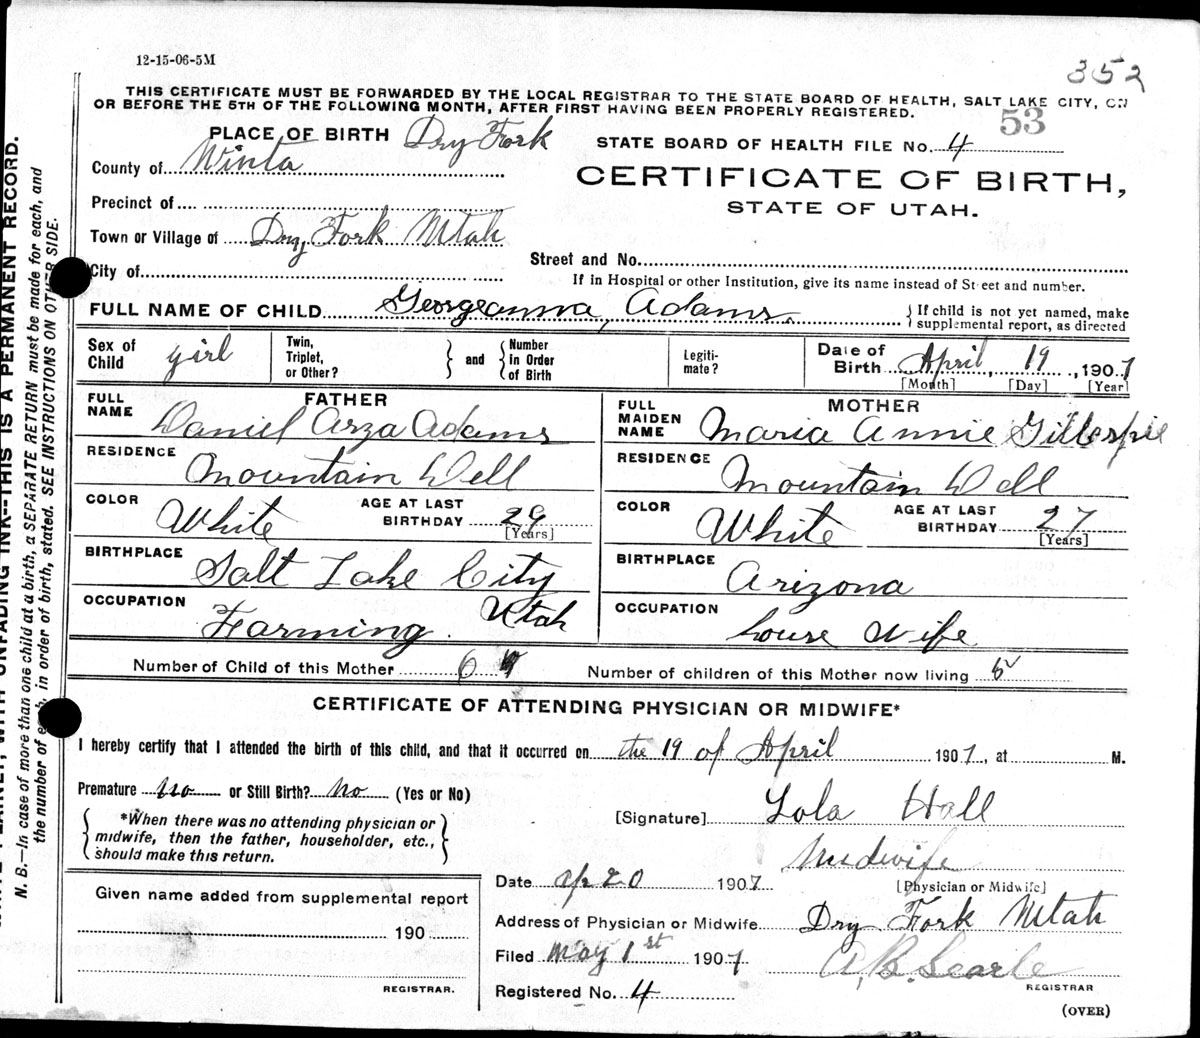 12-15-06-5M
352
THIS CERTIFICATE MUST BE FORWARDED BY THE LOCAL REGISTRAR TO THE STATE BOARD OF HEALTH, SALT LAKE CITY, ON
OR BEFORE THE 5TH OF THE FOLLOWING MONTH, AFTER FIRST HAVING BEEN PROPERLY REGISTERED.
53
PLACE OF BIRTH Dry Fork
STATE BOARD OF HEALTH FILE No. 4
County of Winta
CERTIFICATE OF BIRTH,
STATE OF UTAH.
Precinct of
Town or Village of Dry Fork Utah
Street and No.
City of
If in Hospital or other Institution, give its name instead of Street and number.
FULL NAME OF CHILD Georgeanna, Adams.
If child is not yet named, make
supplemental report, as directed
Sex of Child girl
Twin, Triplet, or Other?
and
Number in Order of Birth
Legiti-mate?
Date of Birth April, 19, 1907
[Month] [Day] [Year]
FATHER
FULL NAME Daniel Arza Adams
RESIDENCE Mountain Dell
COLOR White
AGE AT LAST BIRTHDAY 29
[Years]
BIRTHPLACE Salt Lake City Utah
OCCUPATION Farming.
MOTHER
FULL MAIDEN NAME Maria Annie Gillespie
RESIDENCE Mountain Dell
COLOR White
AGE AT LAST BIRTHDAY 27
[Years]
BIRTHPLACE Arizona
OCCUPATION house wife
Number of Child of this Mother 6
Number of children of this Mother now living 5
CERTIFICATE OF ATTENDING PHYSICIAN OR MIDWIFE*
I hereby certify that I attended the birth of this child, and that it occurred on the 19 of April 1907, at M.
Premature no or Still Birth? no (Yes or No)
*When there was no attending physician or
midwife, then the father, householder, etc.,
should make this return.
[Signature] Lola Hall
Midwife
[Physician or Midwife]
Date Ap 20 1907
Given name added from supplemental report
190
REGISTRAR.
Address of Physician or Midwife Dry Fork Utah
Filed May 1st 1907
A. B. Searle
REGISTRAR
Registered No. 4
(OVER)
WITH UNFADING INK--THIS IS A PERMANENT RECORD.
N. B.—In case of more than one child at a birth, a SEPARATE RETURN must be made for each, and
the number of each, in order of birth, stated. SEE INSTRUCTIONS ON OTHER SIDE.